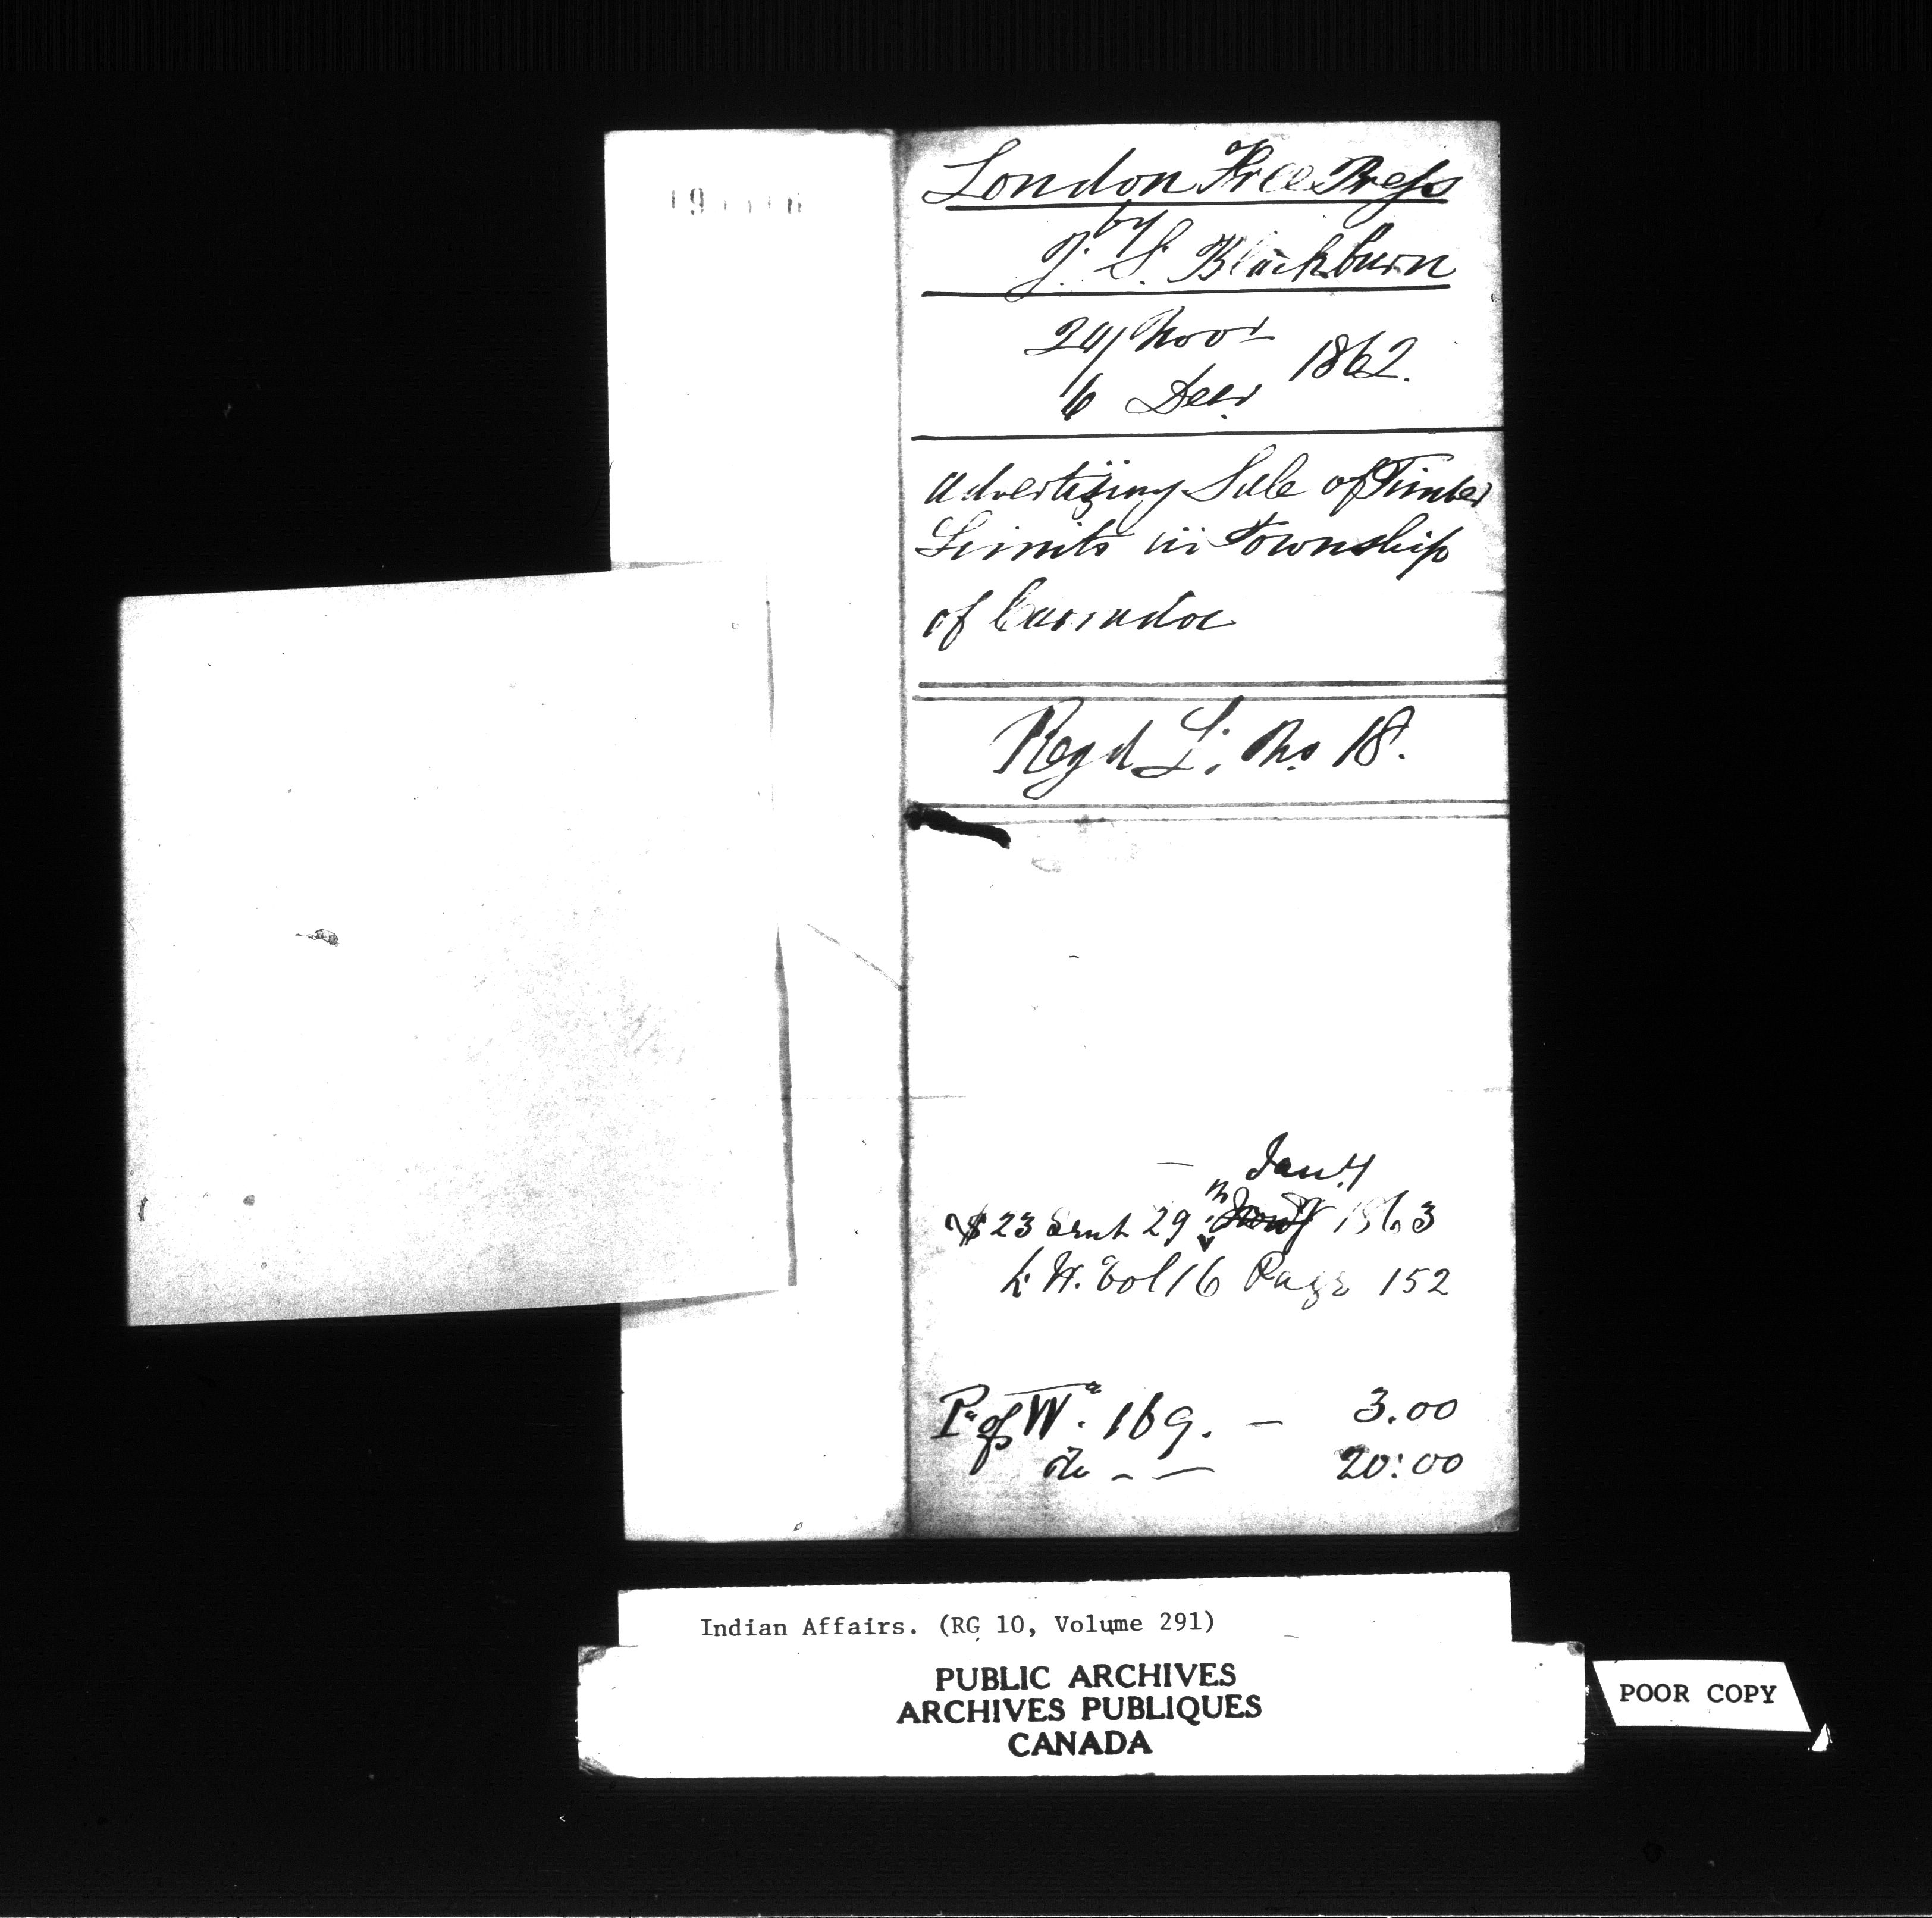 London Free Press
by
J. S. Blackburn
29 Novr
1862.
6 Decr
Advertizing Sale of Timber
Limits in Township
of Carradoc
Regd L; No 18.
Jany
$23 Sent 29th 1863
L. W. Vol 16 Page 152
Pd of Wa. 169. — 3.00
do - — 20:00
Indian Affairs. (RG 10, Volume 291)
PUBLIC ARCHIVES
ARCHIVES PUBLIQUES
CANADA
POOR COPY